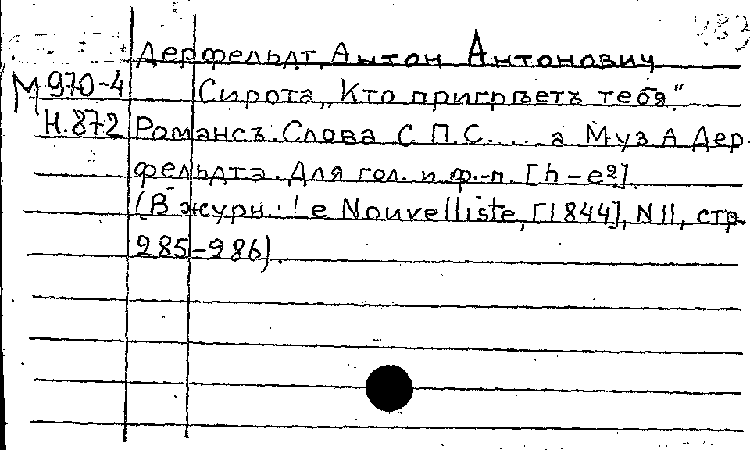 Дерфельдт, Антон Антонович
М 970-4 Сирота „Кто пригрѣетъ тебя."
Н.872 Романсъ. Слова С.П.С.... а Муз А Дер-
фельдта. Для гол. и ф.-п. [h-e²].
(В журн.: Le Nouvelliste, [1844], N 11, стр.
285-286).